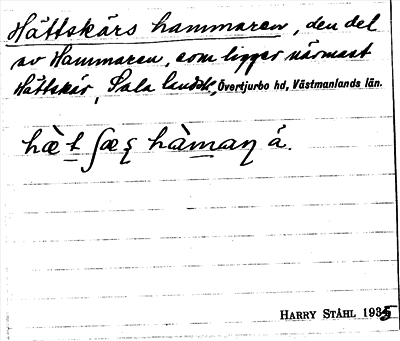 Hättskärs hammaren, den del
av Hammaren, som ligger närmast
Hättskär, Sala landsk., Övertjurbo hd, Västmanlands län.
hæ̀t ʃæʂ hàmaɳ å.
HARRY STÅHL 1935